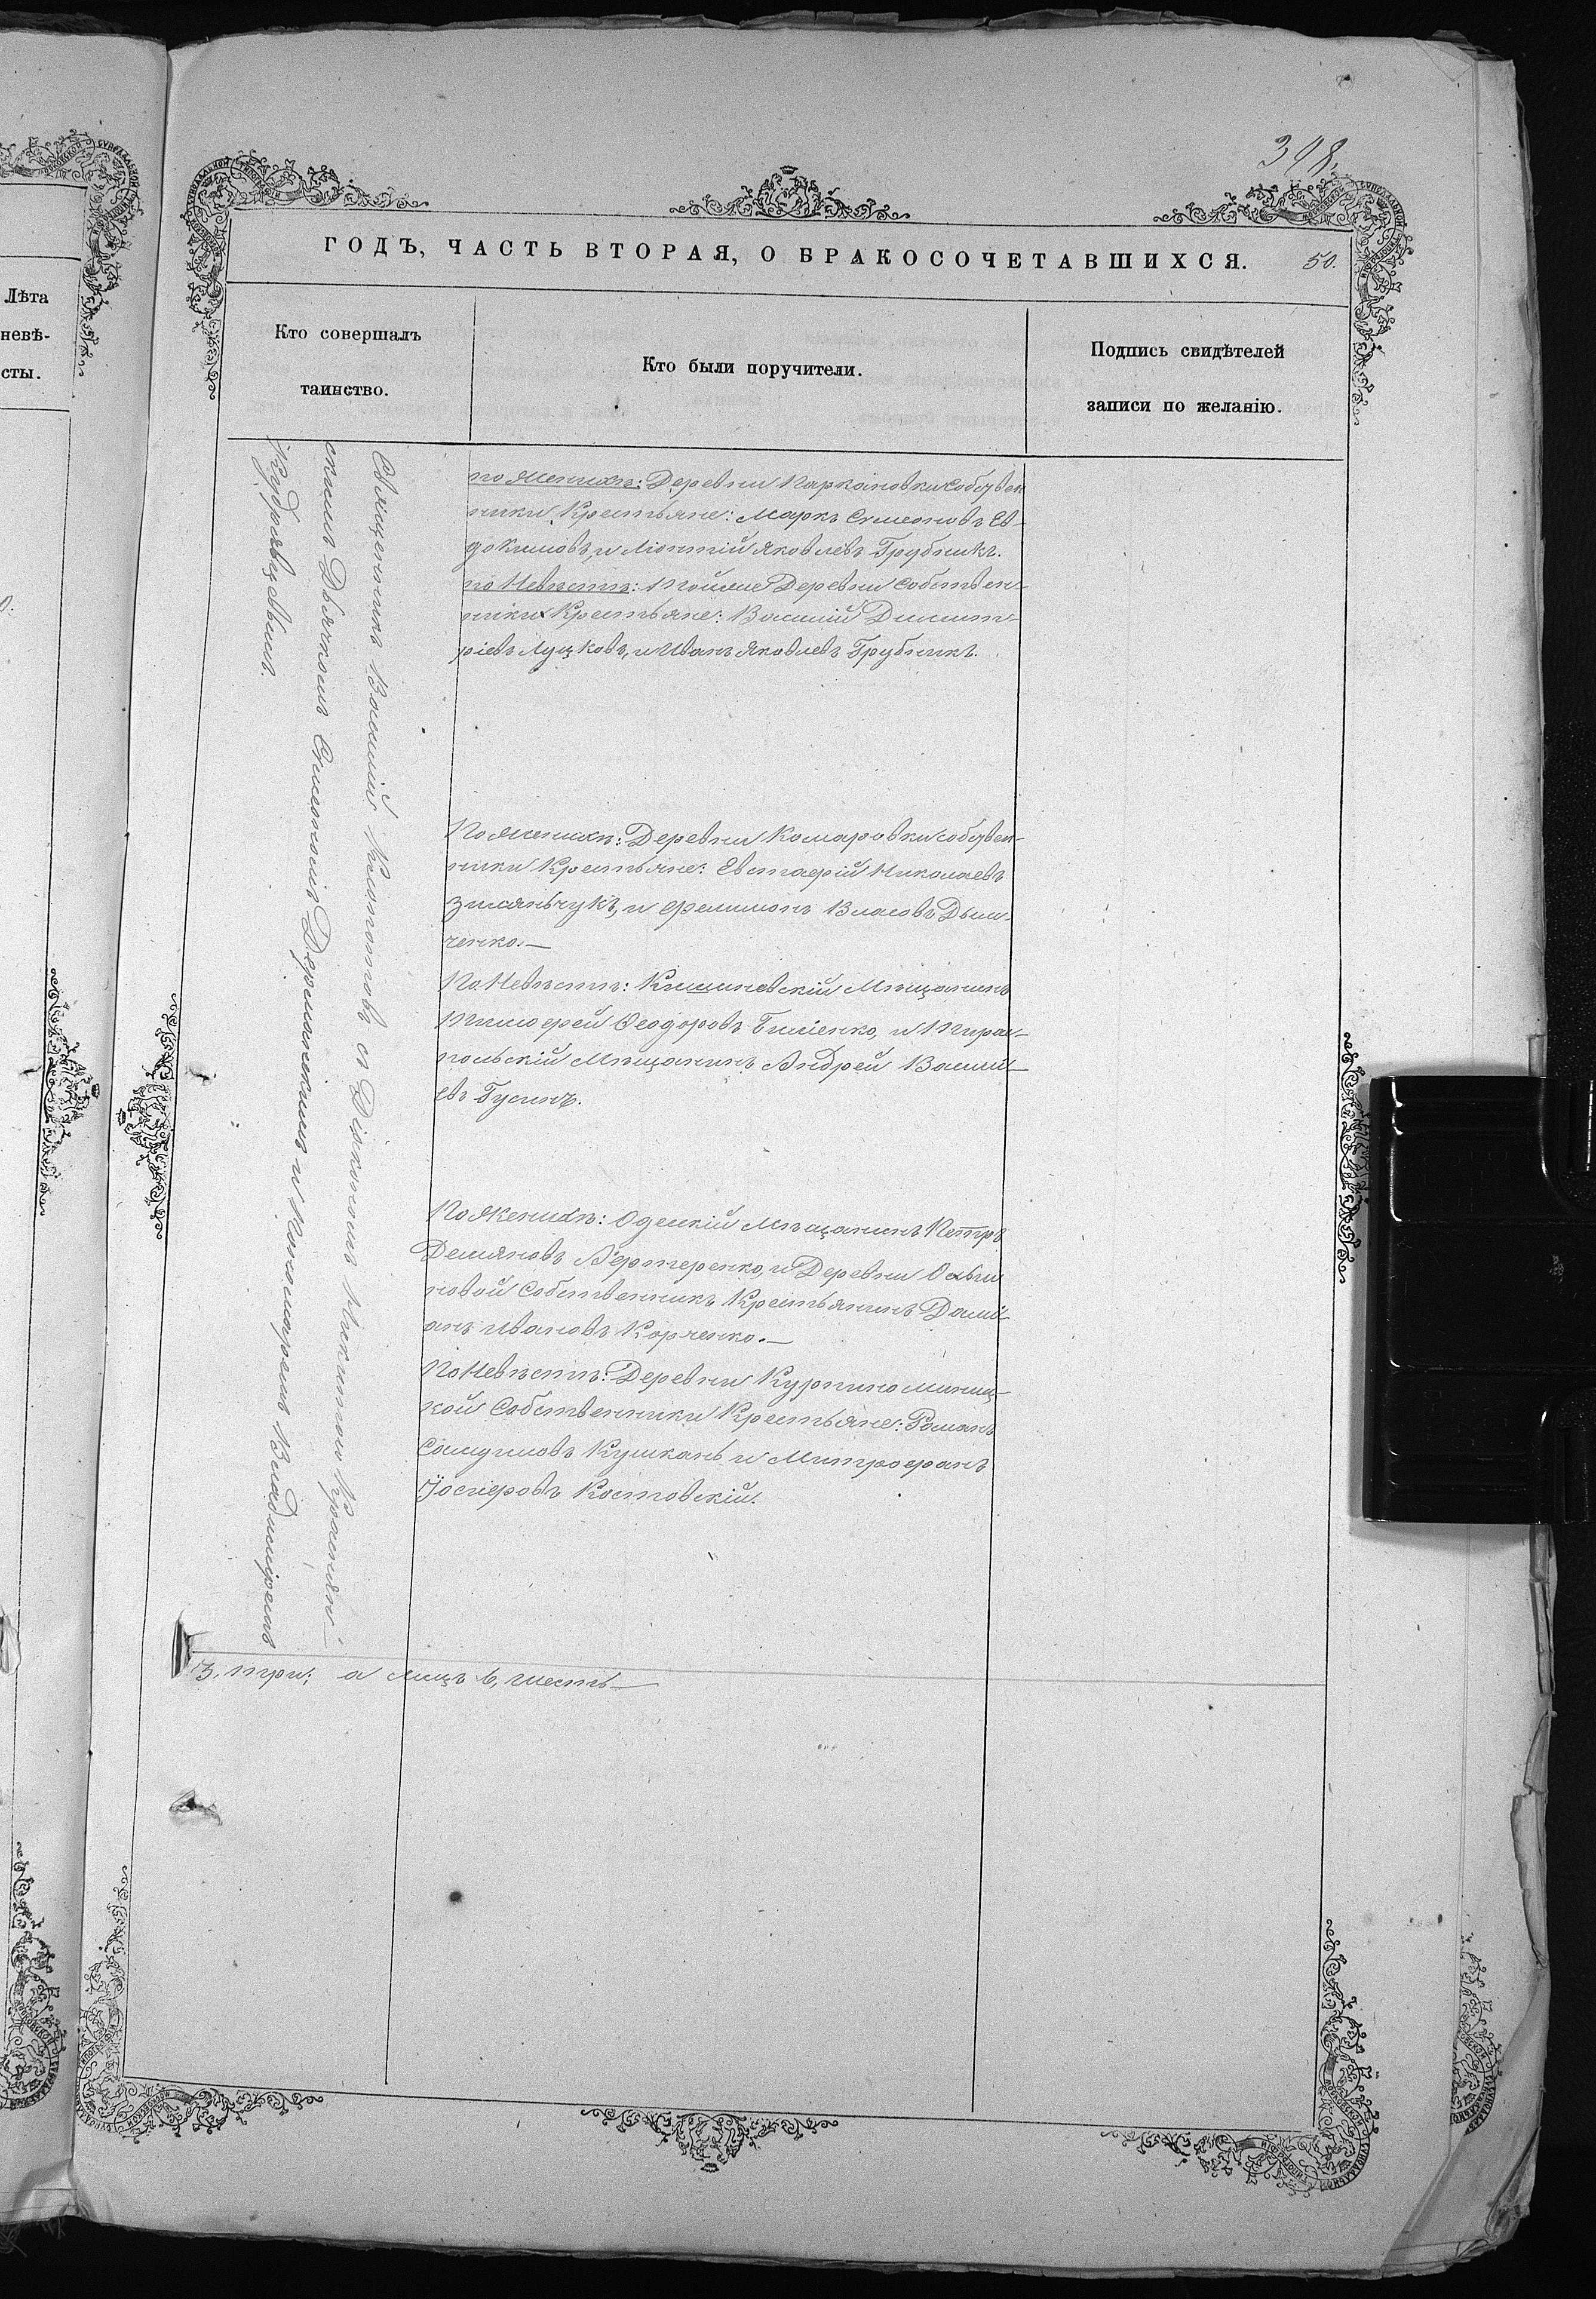 348.
ГОДЪ, ЧАСТЬ ВТОРАЯ, О БРАКОСОЧЕТАВШИХСЯ.
50.
Лѣта
невѣ-
сты.
Кто совершалъ
таинство.
Кто были поручители.
Подпись свидѣтелей
записи по желанію.
Священникъ Василій съ Діакономъ Никитою
скимъ Дьячкомъ Симеономъ и Пономаремъ Владиміромъ
Кудрявцевымъ.
по Женихѣ: Деревни Паркановки собствен
ники Крестьяне: Маркъ Симеоновъ Ев-
докимовъ, и Леонтій Яковлевъ Грубникъ.
по Невѣстѣ: Тойже Деревни собствен-
ники Крестьяне: Василій Димит-
ріевъ Луцковъ, и Иванъ Яковлевъ Грубникъ.
По Женихѣ: Деревни Комаровки собствен-
ники Крестьяне: Евстафій Николаевъ
и Филимонъ Власовъ Дьяч-
ченко.—
По Невѣстѣ: Кишиневскій Мѣщанинъ
Тимофей Ѳеодоровъ Биліенко, и Тирас-
польскій Мѣщанинъ Андрей Василі-
евъ Гусинъ.
По Женихѣ: Одесскій Мѣщанинъ Петръ
Деміановъ и Деревни
новой Собственникъ Крестьянинъ Даміі-
анъ Ивановъ Корченко.—
По Невѣстѣ: Деревни
кой Собственники Крестьяне: Романъ
Самуиловъ Кушканъ и Митрофанъ
Іосифовъ Костовскій.
3, три; а лицъ 6, шесть—